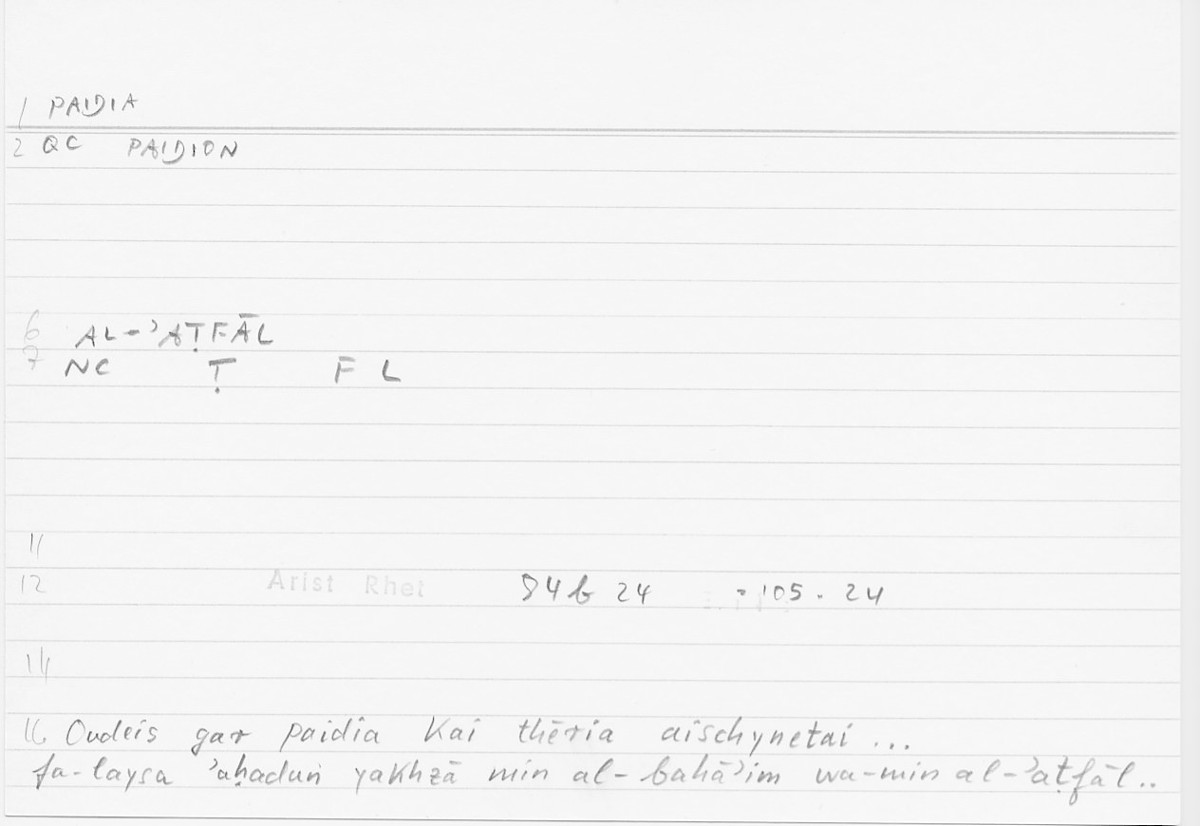 1 PAIDIA
2 QC PAIDION
6 AL-ʾAṬFĀL
7 NC Ṭ F L
11
12 Arist Rhet 84b 24 105. 24
14
16 Oudeis gar paidia kai thēria aischynetai ...
fa-laysa ʾaḥadun yakhzā min al-bahāʾim wa-min al-ʾaṭfāl..